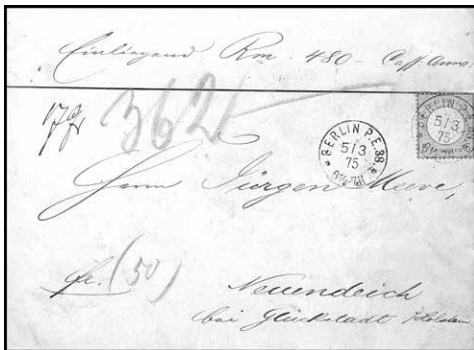 Einliegend Rm 480 - Cass. Anw.
362
BERLIN P.E. 38.
5/3
75
BERLIN P.E.
5/3
75
Herrn Jürgen Meeve,
fr. (50)
Neuendeich
bei Glückstadt Holstein